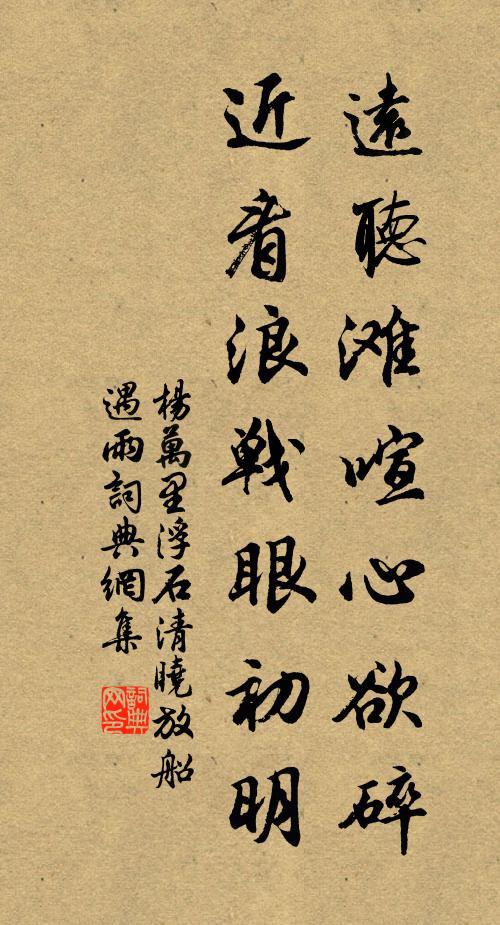 遠聽滩喧心欲碎
近看浪戰眼初明
楊萬里浮石清曉放船
遇雨詞典網集
詞典
网印